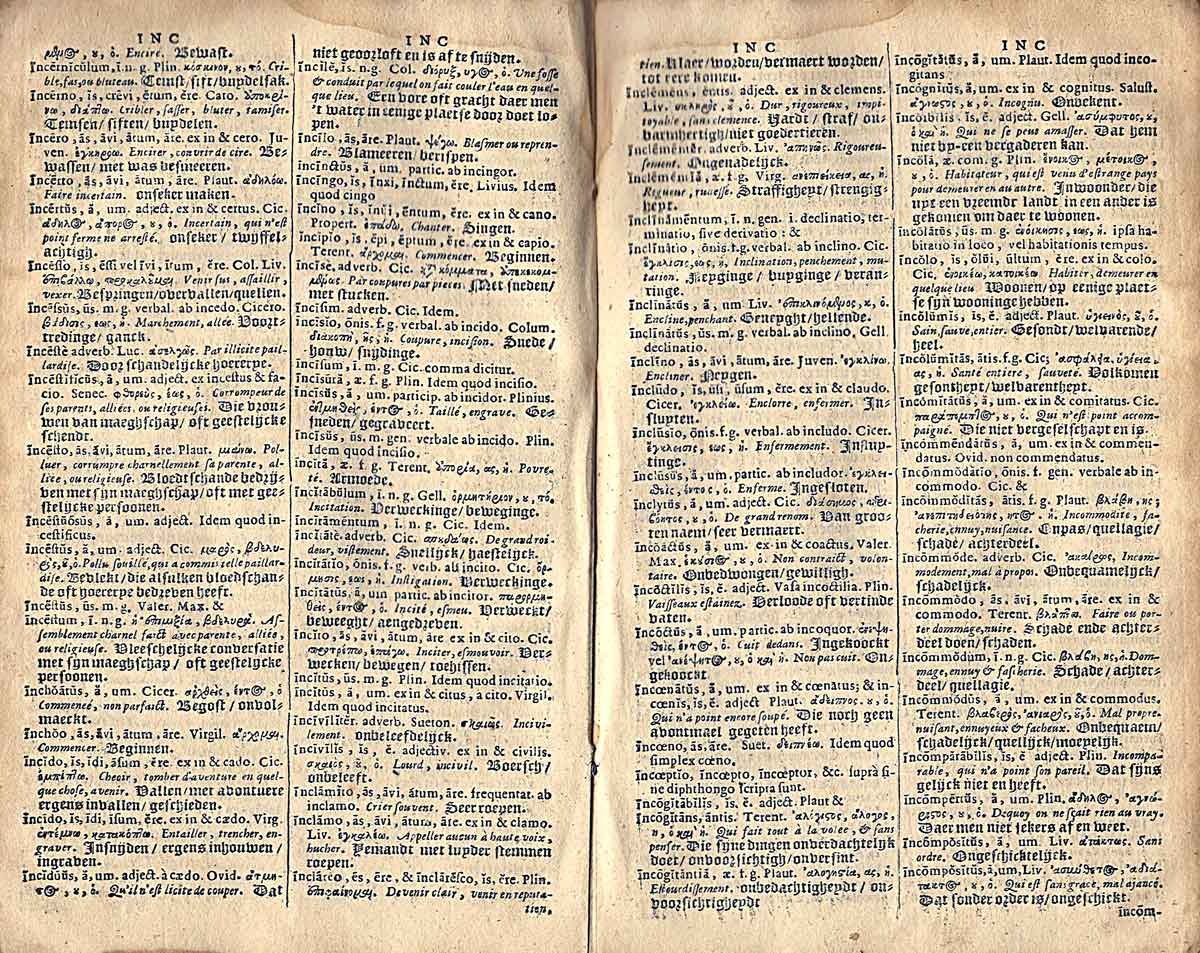 INC
Encire. Bewast.
Incerniculum, i. n. g. Plin. Cri-
ble, sas, ou bluteau. Temst/sift/buydelsak.
Incerno, is, crēvi, ētum, ĕre. Cato.
Cribler, sasser, bluter, tamiser.
Temsen/siften/buydelen.
Incēro, ās, āvi, ātum, āre. ex in & cero. Ju-
ven. Encirer, couvrir de cire. Be-
wassen/met was besmeeren.
Incerto, ās, āvi, ātum, āre. Plaut.
Faire incertain. onseker maken.
Incertus, ă, um. adject. ex in & certus. Cic.
Incertain, qui n'est
point ferme ne arresté. onseker/twyffel-
achtigh.
Col. Liv.
Venir sus, assaillir,
vexer. Bespringen/overvallen/quellen.
Incessus, ūs. m. g. verbal. ab incedo. Cicero.
Marchement, allée. Voort-
tredinge/ganck.
Incestè adverb. Luc. Par illicite pail-
lardise. Door schandelijcke hoererpe.
Incestificus, ă, um. adject. ex incestus & fa-
cio. Senec. Corrompeur de
ses parents, alliées ou religieuses. Die vrou-
wen van maeghschap/oft geestelijcke
schendt.
Incesto, ās, āvi, ātum, āre. Plaut. Pol-
luer, corrumpre charnellement sa parente, al-
liée, ou religieuse. Bloedtschande bedrij-
ven met sijn maeghschap/oft met gee-
stelijcke persoonen.
Incestuōsus, ă, um. adject. Idem quod in-
cestificus.
Incestus, ă, um. adject. Cic.
Pollu souillé, qui a commis telle paillar-
dise. Bevlekt/die alsulken bloedschan-
de oft hoererpe bedreven heeft.
Incestus, ūs. m. g. Valer. Max. &
Incestum, i. n. g. As-
semblement charnel faict avec parente, alliée,
ou religieuse. Vleeschelijcke conversatie
met sijn maeghschap/oft geestelijcke
persoonen.
Inchŏātus, ă, um. Cicer.
Commencé, non parfaict. Begost/onvol-
maeckt.
Inchŏo, ās, āvi, ātum, āre. Virgil.
Commencer. Beginnen.
Incĭdo, ĭs, ĭdi, āsum, ĕre. ex in & cado. Cic.
Cheoir, tomber d'aventure en quel-
que chose, avenir. Vallen/met avontuere
ergens invallen/geschieden.
Incīdo, ĭs, īdi, īsum, ĕre. ex in & cædo. Virg.
Entailler, trencher, en-
graver. Insnijden/ergens inhouwen/
ingraven.
Incīduus, ă, um. adject. à cædo. Ovid.
Qu'il n'est licite de couper. Dat
INC
niet geoorloft en is af te snijden.
Incīlĕ, is. n. g. Col. Une fosse
& conduit par lequel on fait couler l'eau en quel-
que lieu. Een vore oft gracht daer men
't water in eenige plaetse door doet lo-
pen.
Incīlo, ās, āre. Plaut. Blasmer ou repren-
dre. Blameeren/berispen.
Incinctus, ă, um. partic. ab incingor.
Incingo, is, inxi, inctum, ĕre. Livius. Idem
quod cingo
Incino, is, inui, entum, ĕre. ex in & cano.
Propert. Chanter. Singen.
Incipio, is, ēpi, eptum, ĕre. ex in & capio.
Terent. Commencer. Beginnen.
Incisè. adverb. Cic.
Par coupures par pieces. Met sneden/
met stucken.
Incīsim. adverb. Cic. Idem.
Incīsio, ōnis. f. g. verbal. ab incido. Colum.
Coupure, incision. Snede/
houw/snijdinge.
Incīsum, i. m. g. Cic. comma dicitur.
Incīsūră, æ. f. g. Plin. Idem quod incisio.
Incīsus, ă, um. particip. ab incidor. Plinius.
Taillé, engrave. Ge-
sneden/gegraveert.
Incīsus, ūs. m. gen. verbale ab incido. Plin.
Idem quod incisio.
Incită, æ. f. g. Terent. Povre-
té. Armoede.
Incĭtābŭlum, i. n. g. Gell.
Incitation. Verweckinge/beweginge.
Incĭtāmentum, i. n. g. Cic. Idem.
Incĭtātè. adverb. Cic. De grand roi-
deur, vistement. Snellijck/haestelijck.
Incĭtātio, ōnis. f. g. verb. ab incito. Cic.
Instigation. Verweckinge.
Incĭtātus, ă, um partic. ab incitor.
Incité, esmeu. Verweckt/
beweeght/aengedreven.
Incĭto, ās, āvi, ātum, āre ex in & cito. Cic.
Inciter, esmouvoir. Ver-
wecken/bewegen/toehissen.
Incĭtus, ūs. m. g. Plin. Idem quod incitatio.
Incĭtus, ă, um. ex in & citus, a cito. Virgil.
Idem quod incitatus.
Incīvīlĭtĕr. adverb. Sueton. Incivi-
lement. onbeleefdelijck.
Incīvīlis, is, ĕ. adjectiv. ex in & civilis.
Lourd, incivil. Boersch/
onbeleeft.
Inclāmĭto, ās, āvi, ātum, āre. frequentat. ab
inclamo. Crier souvent. Seer roepen.
Inclāmo, ās, āvi, ātum, āre. ex in & clamo.
Liv. Appeller aucun à haute voix,
hucher. Yemandt met luyder stemmen
roepen.
Inclāreo, ēs, ēre, & inclāresco, is, ĕre. Plin.
Devenir clair, venir en reputa-
tien,
INC
tien. Klaer/worden/vermaert worden/
tot eere komen.
Inclēmens, entis. adject. ex in & clemens.
Liv. Dur, rigoureux, impi-
toyable, sans clemence. Hardt/straf/on-
barmhertigh/niet goedertieren.
Inclēmentĕr. adverb. Liv. Rigoureu-
sement. Ongenadelijck.
Inclēmentiă, æ. f. g. Virg.
Rigueur, rudesse. Straffigheyt/strengig-
heyt.
Inclīnāmentum, i. n. gen. i. declinatio, ter-
minatio, sive derivatio: &
Inclīnātio, ōnis. f. g. verbal. ab inclino. Cic.
Inclination, penchement, mu-
tation. Neyginge/buyginge/veran-
ringe.
Inclīnātus, ă, um. Liv.
Encline, penchant. Geneyght/hellende.
Inclīnātus, ūs. m. g. verbal. ab inclino, Gell.
declinatio.
Inclīno, ās, āvi, ātum, āre. Juven.
Encliner. Neygen.
Inclūdo, is, ūsi, ūsum, ĕre. ex in & claudo.
Cicer. Enclorre, enfermer. In-
sluyten.
Inclūsio, ōnis. f. g. verbal. ab includo. Cicer.
Enfermement. Insluy-
tinge.
Inclūsus, ă, um. partic. ab includor.
Enferme. Ingesloten.
Inclytus, ă, um. adject. Cic.
De grand renom. Van groo-
ten naem/seer vermaert.
Incoactus, ă, um. ex in & coactus. Valer.
Max. Non contract, volon-
taire. Onbedwongen/gewilligh.
Incoctilis, is, ĕ. adject. Vasa incoctilia. Plin.
Vaisseaux estainez. Verloode oft vertinde
vaten.
Incoctus, ă, um. partic. ab incoquor.
Cuit dedans. Ingekoockt
vel Non pas cuit. On-
gekoockt
Incœnātus, ă, um. ex in & cœnatus; & in-
cœnis, is, ĕ. adject Plaut.
Qui n'a point encore soupé. Die noch geen
avontmael gegeten heeft.
Incœno, ās, āre. Suet. Idem quod
simplex cœno.
Incœptio, incœpto, incœptor, &c. suprà si-
ne diphthongo scripta sunt.
Incōgĭtābĭlis, is, ĕ. adject. Plaut &
Incōgĭtans, antis. Terent.
Qui fait tout à la volee, & sans
penser. Die sijne dingen onberdachtelijk
doet/onvoorsichtigh/onversint.
Incōgĭtantiă, æ. f. g. Plaut.
Estourdissement. onbedachtigheydt/on-
voorsichtigheydt
INC
Incōgĭtātus, ă, um. Plaut. Idem quod inco-
gitans.
Incognĭtus, ă, um. ex in & cognitus. Salust.
Incognu. Onbekent.
Incoïbilis, is, ĕ. adject. Gell.
Qui ne se peus amasser. Dat hem
niet by-een vergaderen kan.
Incŏlă, æ. com. g. Plin.
Habitateur, qui est venu d'estrange pays
pour demeurer au autre. Inwoonder/die
uyt een vreemdt landt in een ander is
gekomen om daer te woonen.
Incōlātus, ūs. m. g. ipsa ha-
bitatio in loco, vel habitationis tempus.
Incŏlo, is, ŏlui, ultum, ĕre. ex in & colo.
Cic. Habiter, demeurer en
quelque lieu. Woonen/op eenige plaet-
se sijn wooninge hebben.
Incŏlŭmis, is, ĕ. adject. Plaut.
Sain, sauve, entier. Gesondt/welvarende/
heel.
Incŏlŭmĭtās, ātis. f. g. Cic;
Santé entiere, sauveté. Volkomen
gesontheyt/welvarentheyt.
Incŏmĭtātus, ă, um. ex in & comitatus. Cic.
Qui n'est point accom-
paigne. Die niet vergeselschapt en is.
Incommendātus, ă, um. ex in & commen-
datus. Ovid. non commendatus.
Incommŏdātio, ōnis. f. gen. verbale ab in-
commodo. Cic. &
Incommŏdĭtās, ātis. f. g. Plaut.
Incommodite, fa-
cherie, ennuy, nuisance. Onpas/quellagie/
schade/achterdeel.
Incommŏdè. adverb. Cic. Incom-
modement, mal à propos. Onbequamelijck/
schadelijck.
Incommŏdo, ās, āvi, ātum, āre. ex in &
commodo. Terent. Faire ou por-
ter dommage, nuire. Schade ende achter-
deel doen/schaden.
Incommŏdum, i. n. g. Cic. Dom-
mage, ennuy & fascherie. Schade/achter-
deel/quellagie.
Incommŏdus, ă, um. ex in & commodus.
Terent. Mal propre.
nuisant, ennuyeux & facheux. Onbequaem/
schadelijck/quellijck/moeyelijk.
Incompărābĭlis, is, ĕ adject. Plin. Incompa-
rable, qui n'a point son pareil. Dat sijns
gelijck niet en heeft.
Incompertus, ă, um. Plin.
Dequoy on ne sçait rien au vray.
Daer men niet sekers af en weet.
Incompŏsĭtus, ă, um. Liv. Sans
ordre. Ongeschickelijck.
Incompŏsĭtus, ă, um, Liv.
Qui est sans grace, mal ajancé.
Dat sonder order is/ongeschickt.
incom-